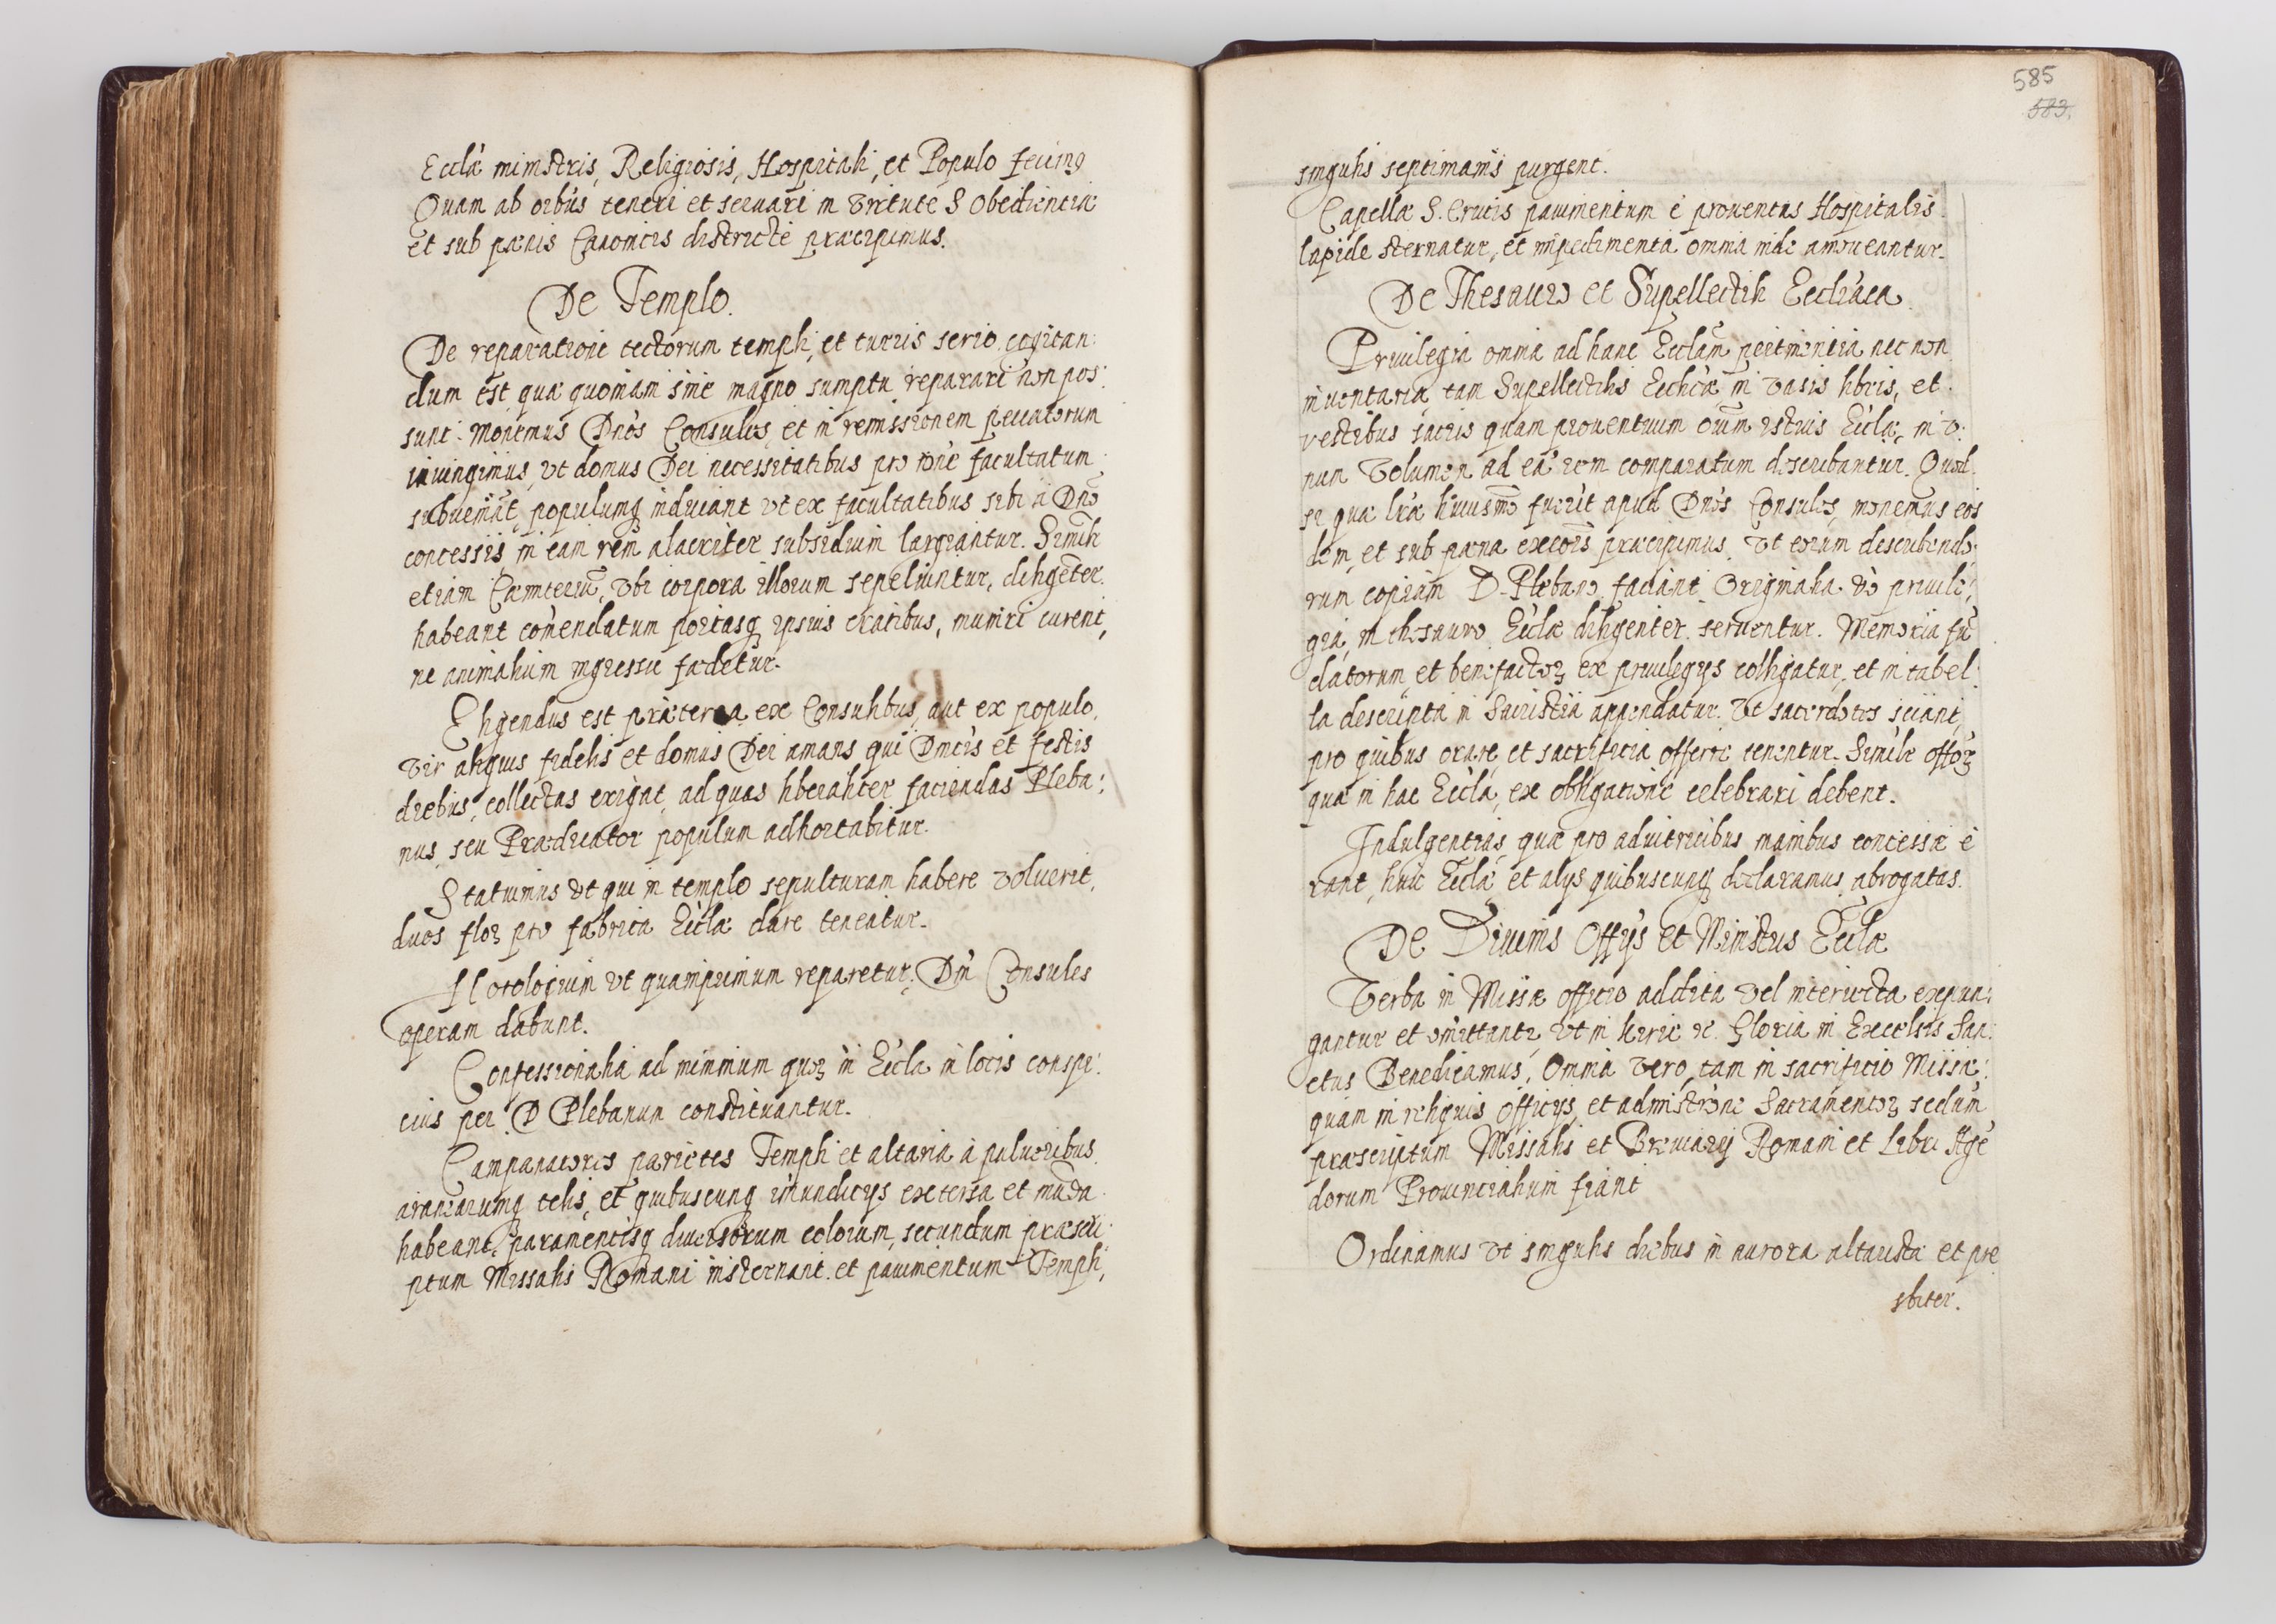 Ecclæ ministris, Religiosis, Hospitali, et Populo fecimꝰ
Quam ab oibus teneri et seruari in virtute S Obedientiæ
et sub pœnis Canonicis districte præcipimus.
De Templo.
De reparatione tectorum templi, et turris serio cogitan:
dum est quæ quoniam sine magno sumptu reparari non pos:
sunt. Monemus Dnos Consules, et in remissionem peccatorum
iniungimus, vt domus Dei necessitatibus pro rõne facultatum
subueniãt, populumq inducant vt ex facultatibus sibi à Dno
concessis, in eam rem alacriter subsidium largiantur. Simili
etiam Cæmiteriũ, vbi corpora illorum sepeliuntur, diligẽter
habeant comendatum portasq ipsius cratibus, muniri curent,
ne animalium ingressu fœdetur.
Eligendus est præterea ex Consulibus, aut ex populo,
vir aliquis fidelis et domus Dei amans qui Dnicis et festis
diebus, collectas exigat, ad quas liberaliter faciendas Pleba:
nus, seu Prædicator populum adhortabitur.
Statuimus vt qui in templo sepulturam habere voluerit,
duos floꝝ pro fabrica Eccla dare teneatur.
Horologium vt quamprimum reparetur, Dni Consules
operam dabunt.
Confessionalia ad minimum quoꝝ in Eccla in locis conspi:
cuis per D Plebanum constituantur.
Campanatores parietes Templi et altaria à pulueribus
aranearumq telis, et quibuscunq imundicijs extersa et mũda
habeant, paramentisq diuersorum colorum, secundum præscri:
ptum Missalis Romani insternant. et pauimentum Templi,
585
583.
singulis septimanis purgent.
Capellæ S. Crucis pauimentum è prouentus Hospitalis
lapide sternatur, et impedimenta omnia inde amoueantur.
De Thesauro et Supellectili Ecclîaca
Priuilegia omnia ad hanc Ecclam pertinentia nec non
inuentaria, tam Supellectilis Ecclicæ in vasis libris, et
vestibus sacris quam prouentuum oium istius Ecclæ, in v:
num volumen ad eã rem comparatum describantur. Quod
si quæ lræ huiusmõi fuerit apud Dnos Consules, monemus eos
dem, et sub pœna excõis præcipimus, vt eorum describendo:
rum copiam D. Plebano faciant. Originalia vò priuile:
gia, in thesauro Ecclæ diligenter seruentur. Memoria fũ
datorum et benefactoꝝ ex priuilegijs colligatur, et in tabel:
la descripta in Sacristia appendatur. Vt sacerdotes sciant,
pro quibus orare, et sacrificia offerre tenentur. Simile offoꝝ
quæ in hac Eccla, ex obligatione celebrari debent.
Indulgentias, quæ pro aduitricibus manibus concessæ e
rant, huic Ecclæ et alijs quibuscunq declaramus abrogatas.
De Diuinis Offijs et Ministris Ecclæ
Verba in Missæ officio addita vel interiecta expun:
gantur et omittantꝛ, vt in kirie ec. Gloria in Excelsis San:
ctus Benedicamus. Omnia vero, tam in sacrificio Missæ:
quam in reliquis officijs, et admistrõne Sacramentoꝝ secdum
præscriptum Missalis et Breuiarij Romani et Libri Agẽ
dorum Prouincialium fiant
Ordinamus vt singulis diebus in aurora altarista et pre
sbiter.